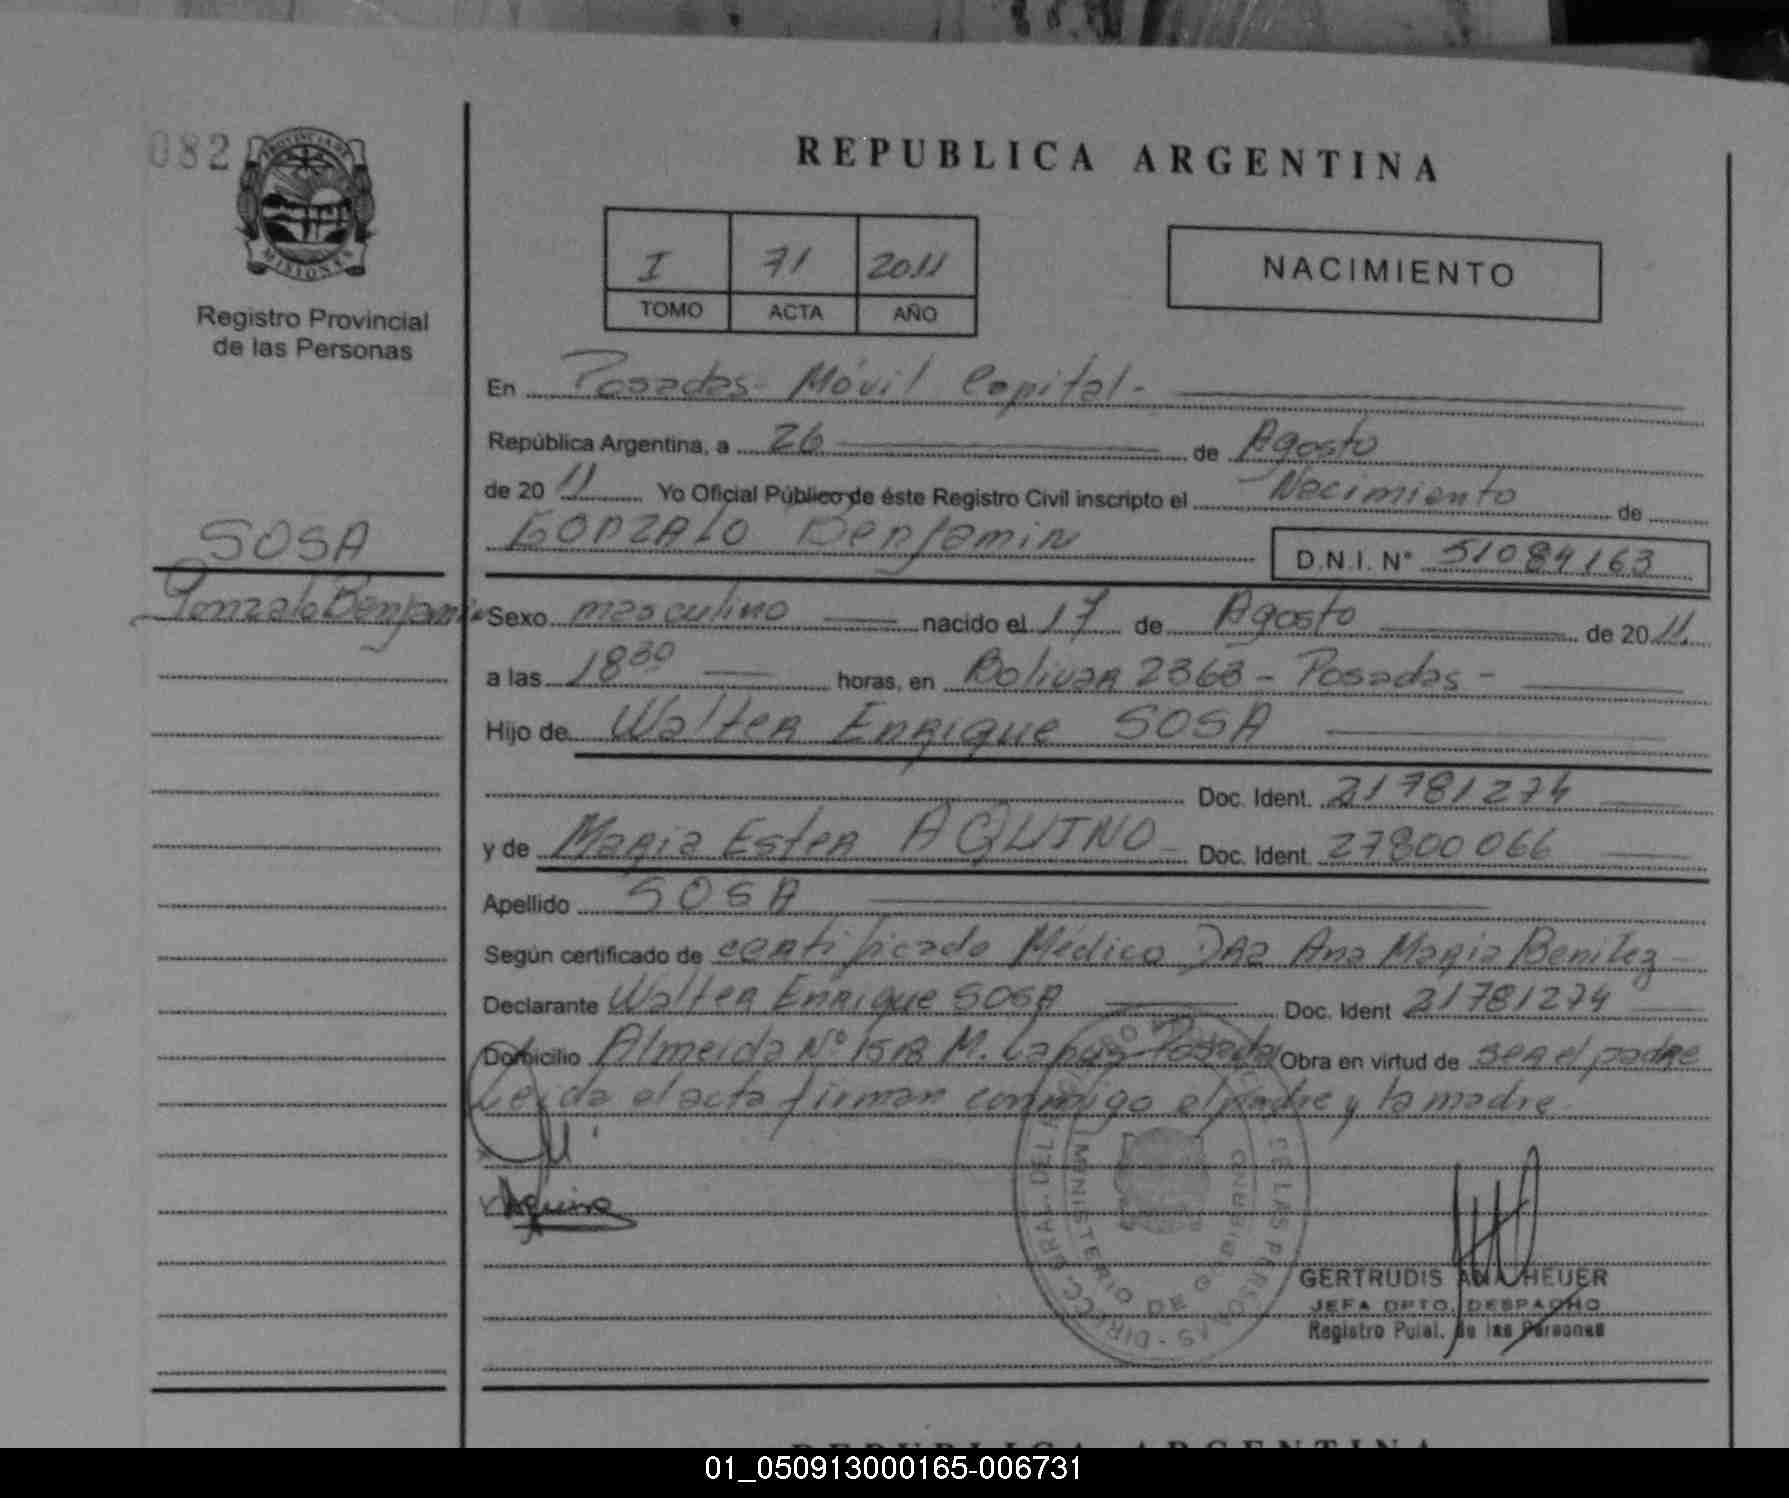 082
PROVINCIA DE
MISIONES
Registro Provincial
de las Personas
SOSA
Gonzalo Benjamin
REPUBLICA ARGENTINA
I 71 2011
TOMO ACTA AÑO
NACIMIENTO
En Posadas - Móvil Capital -
República Argentina, a 26 de Agosto
de 20 11 Yo Oficial Público de éste Registro Civil inscripto el Nacimiento de
GONZALO Benjamin D.N.I. N° 51084163
Sexo masculino nacido el 17 de Agosto de 20 11
a las 18 30 horas, en Bolivar 2363 - Posadas -
Hijo de Walter Enrique SOSA
Doc. Ident. 21781274
y de Maria Ester AQUINO Doc. Ident. 27800066
Apellido SOSA
Según certificado de certificado Médico DRA Ana Maria Benitez
Declarante Walter Enrique SOSA Doc. Ident 21781274
Domicilio Almeida N° M. Lanus Posadas Obra en virtud de ser el padre
Leida el acta firman conmigo el padre y la madre.
Aquino
MINISTERIO DE GOBIERNO
DE LAS PERSONAS - DIRECC. GRAL. DEL
GERTRUDIS ANA HEUER
JEFA DPTO. DESPACHO
Registro Pcial. de las Personas
REPUBLICA ARGENTINA
01_050913000165-006731